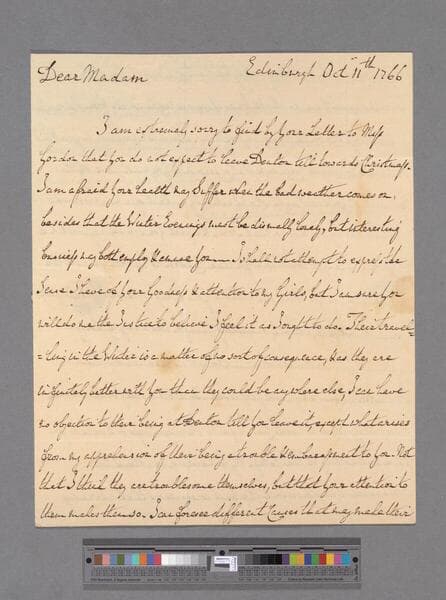 Edinburgh Octr 11th 1766
Dear Madam
I am extremely sorry to find by your Letter to Miss
Gordon that you do not expect to leave Denton till towards Christmass.
I am afraid your health may suffer when the bad weather comes on,
besides that the Winter Evenings must be dismally lonely, but interesting
business may both employ & amuse you — I shall not attempt to express the
sense I have of your Goodness & attention to my Girls, but I am sure you
will do me the Justice to believe I feel it as I ought to do. Their travel=
=ling in the Winter is a matter of no sort of consequence, & as they are
infinitely better with you than they could be any where else, I can have
no objection to their being at Denton till you leave it, except what arises
from my apprehension of their being a trouble & embarrassment to you. Not
that I think they are troublesome themselves, but that your attention to
them makes them so. I can foresee different Causes that may make their